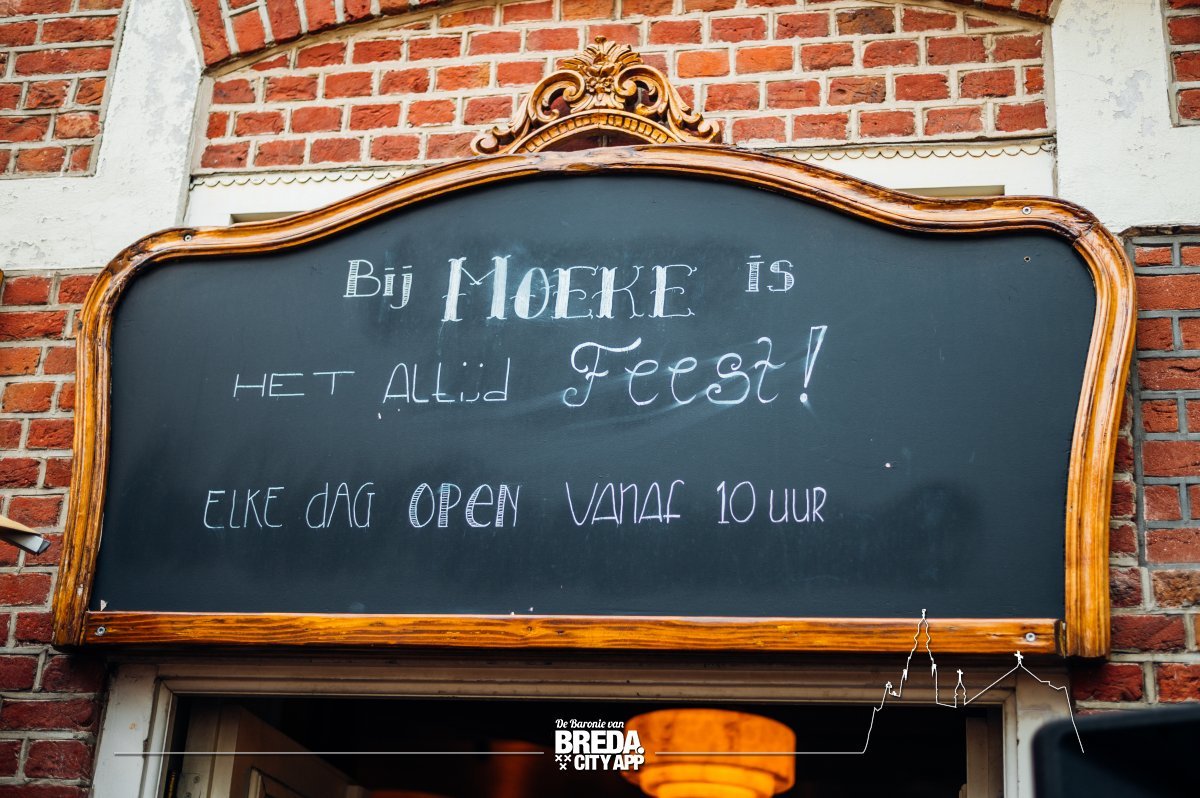 Bij MOEKE is
HET Altijd Feest!
ELKE dAG OPEN VANAF 10 UUR
De Baronie van
BREDA.
CITY APP